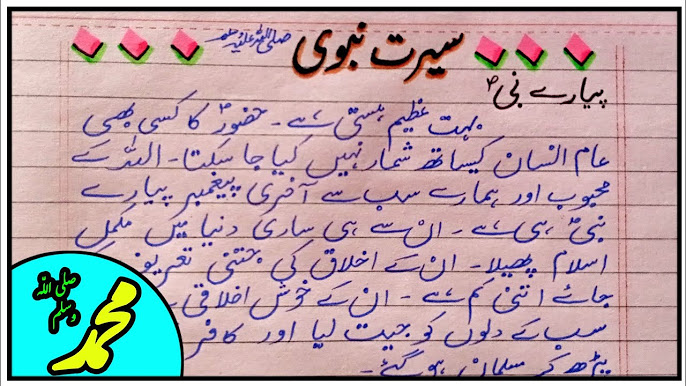 سیرت نبوی صلی اللہ علیہ وسلم
پیارے نبیؐ
بہت عظیم ہستی ہے۔ حضورؐ کا کسی بھی
عام انسان کیساتھ شمار نہیں کیا جا سکتا۔ اللہ کے
محبوب اور ہمارے سب سے آخری پیغمبر پیارے
نبیؐ ہی ہے۔ ان سے ہی ساری دنیا میں مکمل
اسلام پھیلا۔ ان کے اخلاق کی جتنی
جائے اتنی کم ہے۔ ان کے خوش اخلاقی
سب کے دلوں کو جیت لیا اور کافر
پڑھ کر مسلمان ہو گئے۔
صلی اللہ
وسلم
محمد